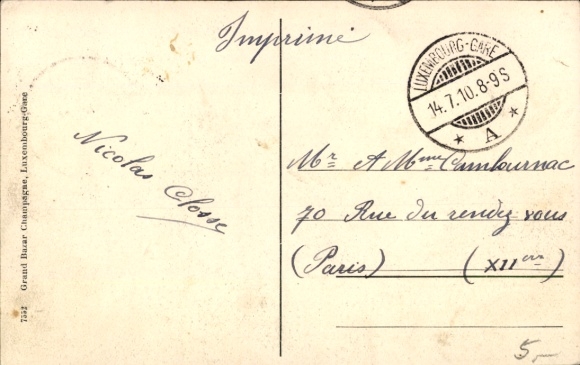 Imprimé
LUXEMBOURG-GARE
14.7.10.8-9S
A
Nicolas Closse
Mr A Mme Cumbournac
70 Rue du rendez vous
(Paris) (XIIem)
7552 Grand Bazar Champagne, Luxembourg-Gare
5,-